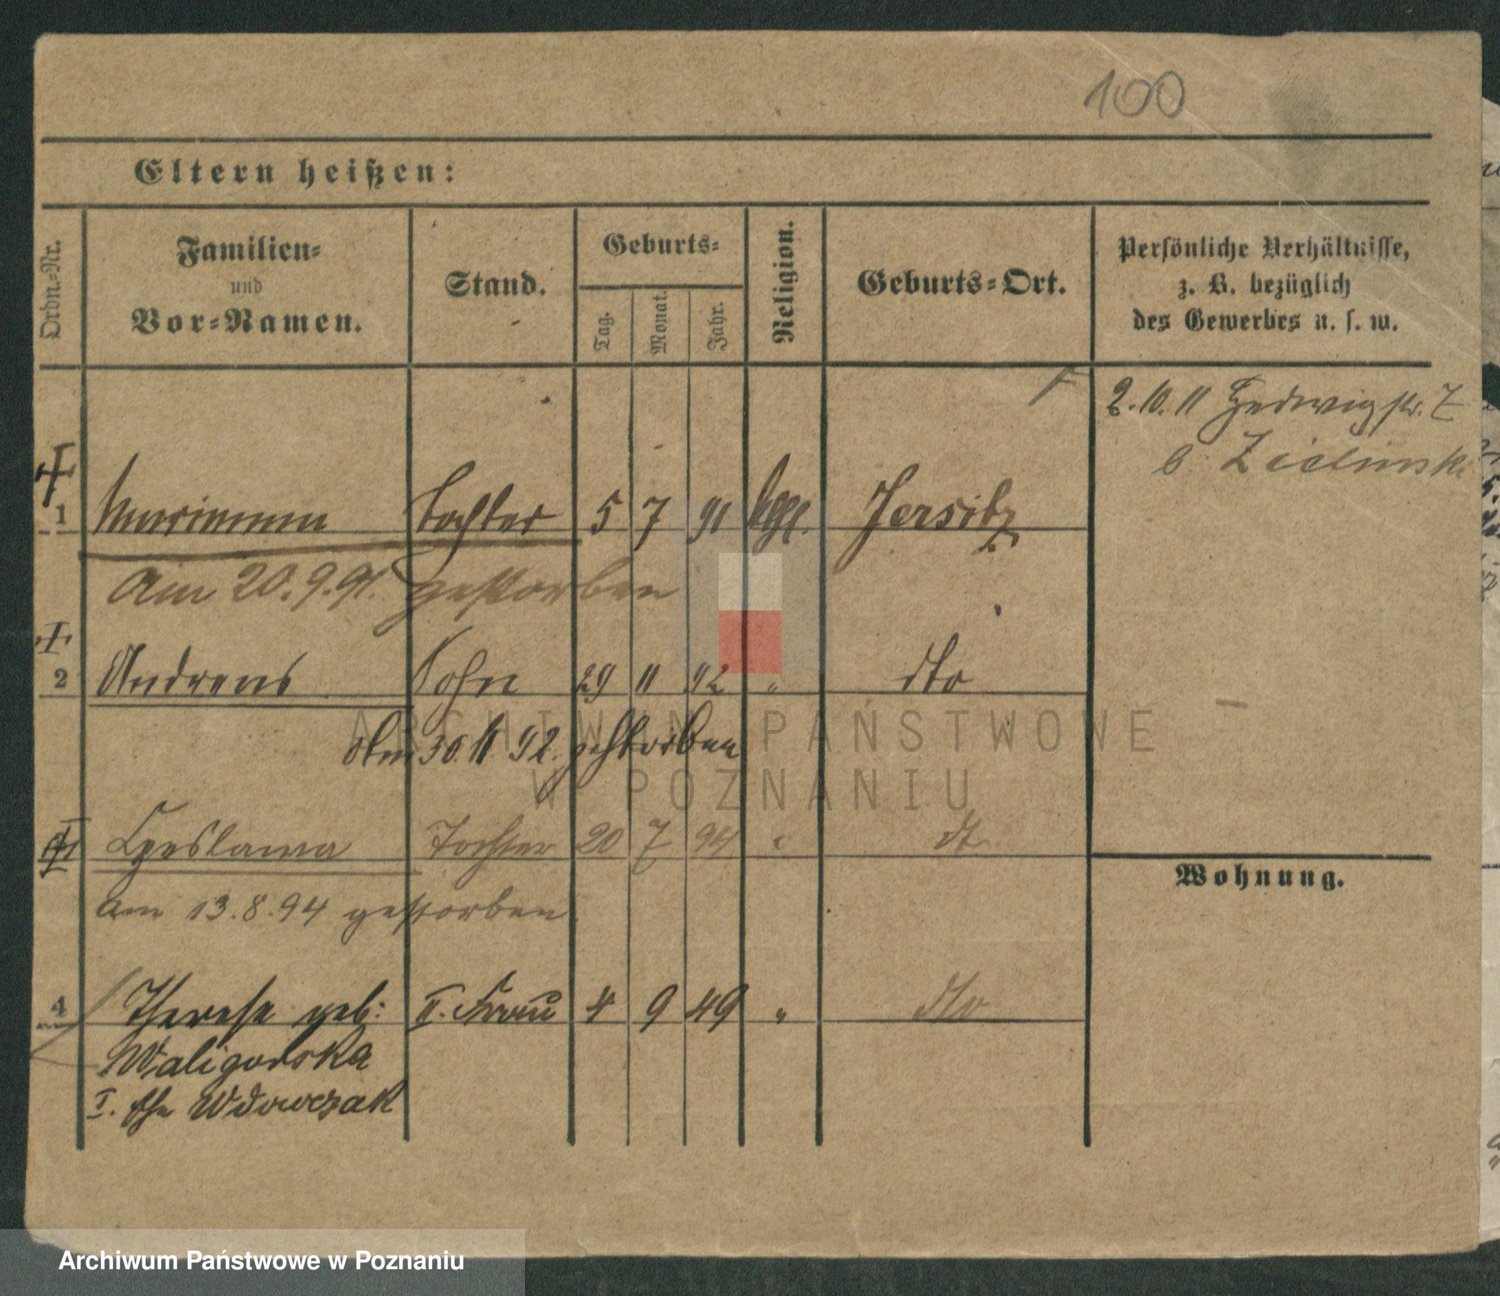 100
Eltern heißen:
Ordn.-Nr.
Familien-
und
Vor-Namen.
Stand.
Geburts-
Tag.
Monat.
Jahr.
Religion.
Geburts-Ort.
Persönliche Verhältnisse,
z. B. bezüglich
des Gewerbes u. s. w.
2.10.11 Hedwigstr. 7
b. Zielinski
1 Marianna Tochter 5 7 91 kgl. Jersitz
Am 20.9.91. gestorben
2 Andreas Sohn 29 11 92 " dto
Am 30.11.92. gestorben
Czeslawa Tochter 20 7 94 " dt
am 13.8.94 gestorben
Wohnung.
4 Therese geb: II. Frau 4 9 49 " dto
Waligorska
I. Ehe Wdowczak
ARCHIWUM PAŃSTWOWE
W POZNANIU
Archiwum Państwowe w Poznaniu